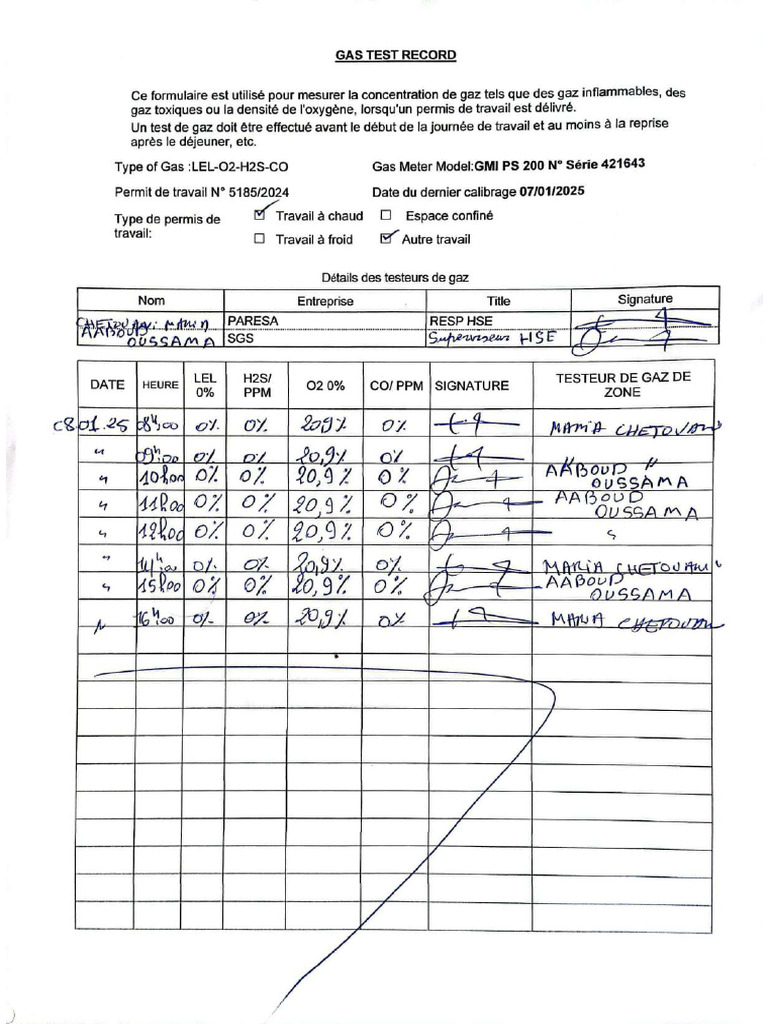 GAS TEST RECORD
Ce formulaire est utilisé pour mesurer la concentration de gaz tels que des gaz inflammables, des
gaz toxiques ou la densité de l'oxygène, lorsqu'un permis de travail est délivré.
Un test de gaz doit être effectué avant le début de la journée de travail et au moins à la reprise
après le déjeuner, etc.
Type of Gas :LEL-O2-H2S-CO Gas Meter Model:GMI PS 200 N° Série 421643
Permit de travail N° 5185/2024 Date du dernier calibrage 07/01/2025
Type de permis de travail: ☑ Travail à chaud ☐ Espace confiné
☐ Travail à froid ☑ Autre travail
Détails des testeurs de gaz
Nom Entreprise Title Signature
CHETOUANI MARIA PARESA RESP HSE
AABOUD OUSSAMA SGS Superviseur HSE
DATE HEURE LEL 0% H2S/ PPM O2 0% CO/ PPM SIGNATURE TESTEUR DE GAZ DE ZONE
08.01.25 08h00 0% 0% 20,9% 0% MARIA CHETOUANI
" 09h00 0% 0% 20,9% 0% " "
" 10h00 0% 0% 20,9% 0% AABOUD OUSSAMA
" 11h00 0% 0% 20,9% 0% AABOUD OUSSAMA
" 12h00 0% 0% 20,9% 0% "
" 14h00 0% 0% 20,9% 0% MARIA CHETOUANI
" 15h00 0% 0% 20,9% 0% AABOUD OUSSAMA
" 16h00 0% 0% 20,9% 0% MARIA CHETOUANI